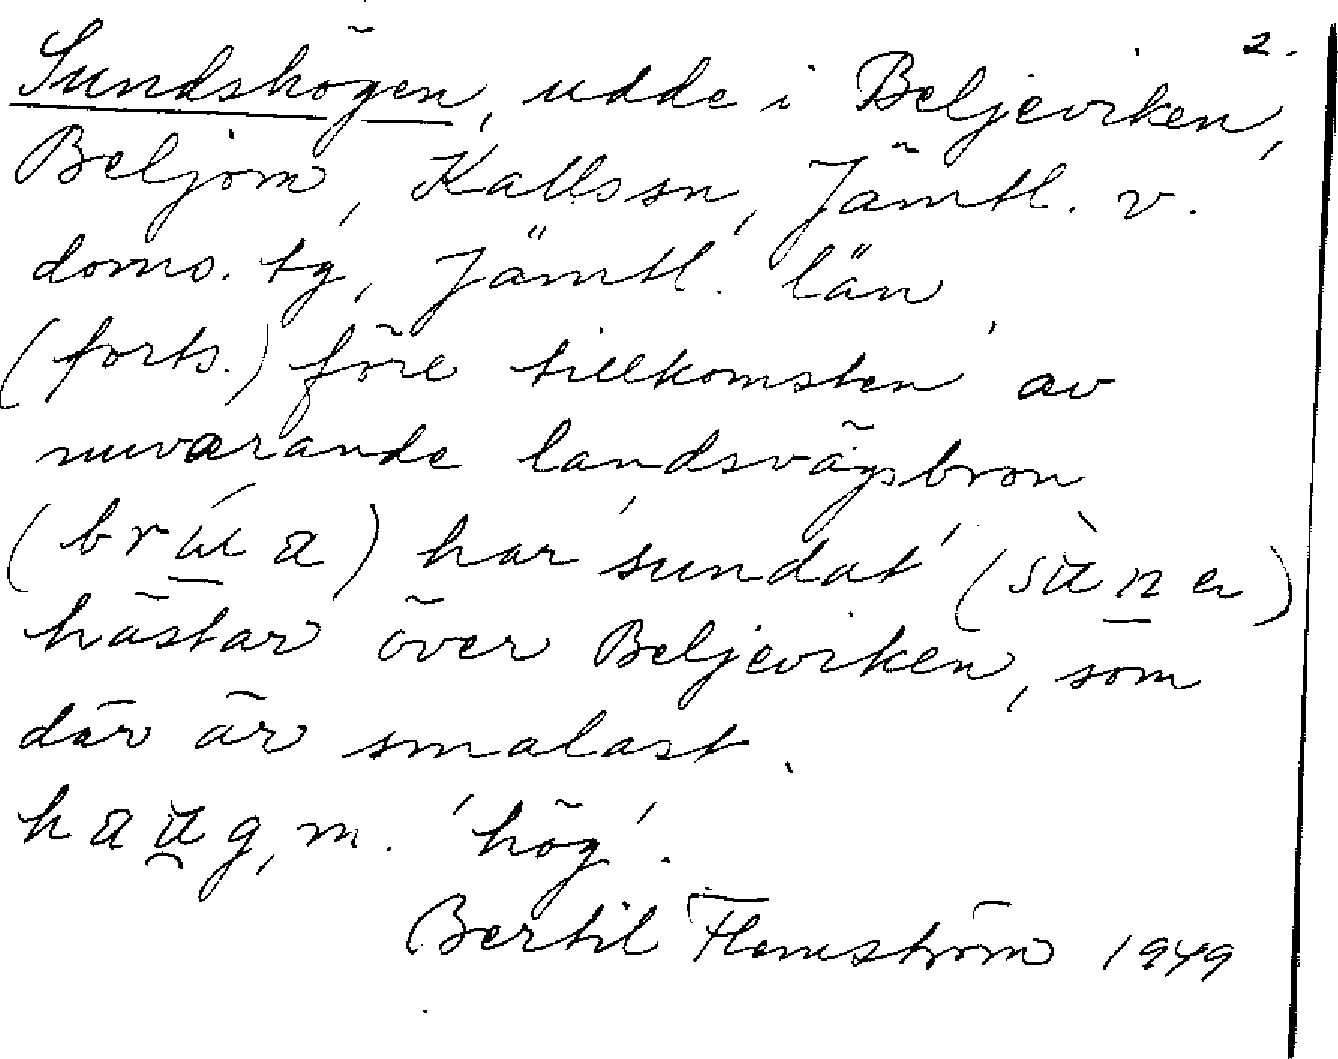 2.
Sundshögen, udde i Beljeviken,
Beljom, Kallssn, Jämtl. v.
doms. tg, Jämtl. län
(forts.) före tillkomsten av
nuvarande landsvägsbron
(brúa) har 'sundat'
hästar över Beljeviken, som
där är smalast.
haug, m. 'hög'.
Bertil Flemström 1949